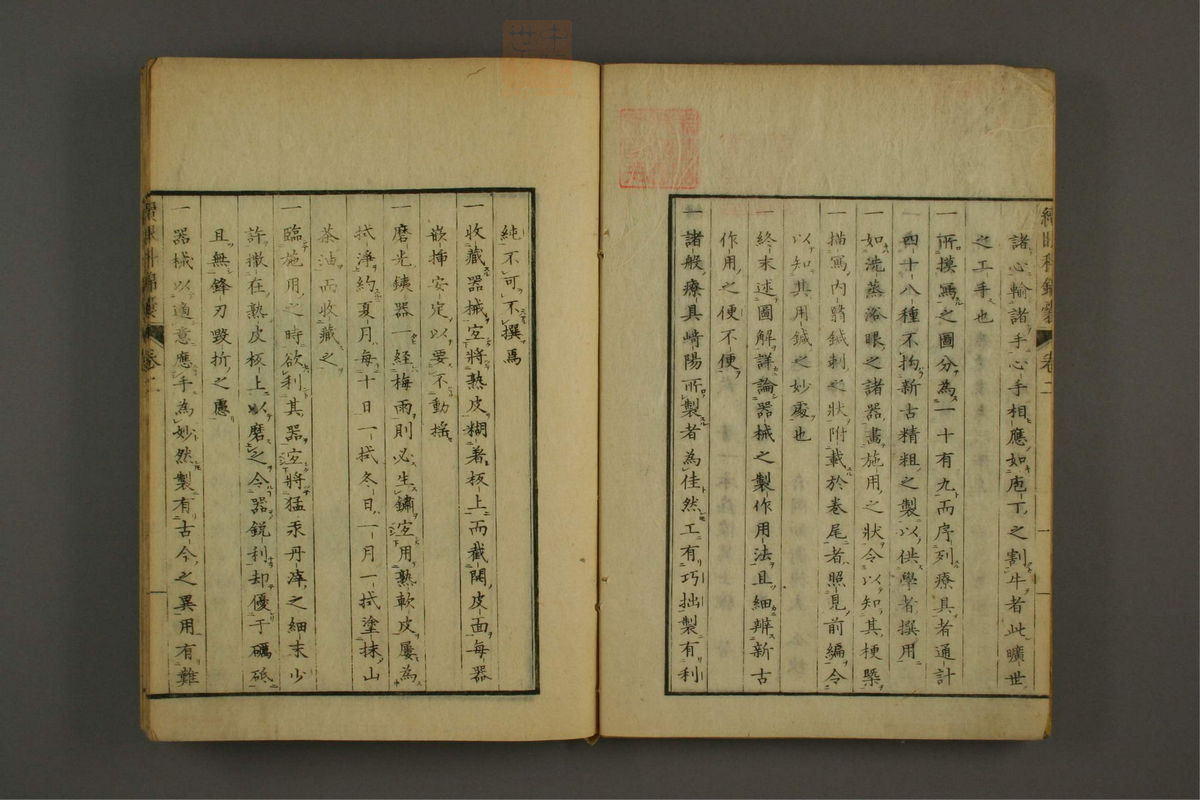 續眼科錦囊　卷二
諸心輸諸手心手相應如庖丁之割牛者此曠世
之工手也
一所摸寫之圖分為一十有九而序列療具者通計
四十八種不拘新古精粗之製以供學者撰用
一如洗蒸滃眼之諸器畫施用之狀令以知其梗槩
一描寫內翳鍼刺之狀附載於卷尾者照見前編令
以知其用鍼之妙處也
一終末述圖解詳論器械之製作用法且細辨新古
作用之便不便
一諸般療具﨑陽所製者為佳然工有巧拙製有利
純不可不撰焉
一收藏器械宜將熟皮糊著板上而截開皮面每器
嵌挿安定以要不動搖
一磨光銕器一經梅雨則必生鏽宜用熟軟皮屢為
拭淨約夏月每十日一拭冬日一月一拭塗抹山
茶油而收藏之
一臨施用之時欲利其器宜將猛汞丹滓之細末少
許撒在熟皮板上以磨之令器銳利却優于礪砥
且無鋒刃毀折之慮
一器械以適意應手為妙然製有古今之異用有難
續眼科錦囊　卷二